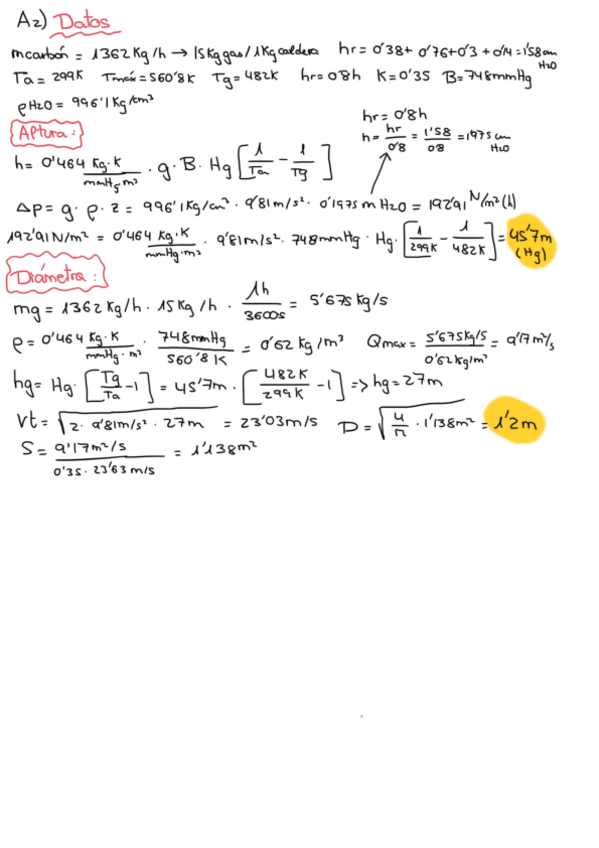 A2) Datos
mcarbón = 1362 Kg/h → 15Kg gas/1Kg caldera hr = 0'38+ 0'76+0'3 + 0'14 = 1'58 cm H2O
Ta = 299K Tmáx = 560'8K Tg = 482K hr = 0'8h K = 0'35 B = 748mmHg
ρH2O = 996'1 Kg/cm³
hr = 0'8h
Altura:
h = hr/0'8 = 1'58/0'8 = 1'975 cm H2O
h = 0'464 Kg·K/mmHg·m³ · g · B · Hg [1/Ta − 1/Tg]
Δp = g · ρ · z = 996'1Kg/cm³ · 9'81m/s² · 0'1975 m H2O = 192'91 N/m² (h)
192'91 N/m² = 0'464 Kg·K/mmHg·m³ · 9'81m/s² · 748mmHg · Hg · [1/299K − 1/482K] = 45'7m (Hg)
Diámetro:
mg = 1362 Kg/h · 15 Kg/h · 1h/3600s = 5'675 Kg/s
ρ = 0'464 Kg·K/mmHg·m³ · 748mmHg/560'8 K = 0'62 Kg/m³ Qmax = 5'675Kg/s/0'62 Kg/m³ = 9'17m³/s
hg = Hg · [Tg/Ta −1] = 45'7m · [482K/299K −1] => hg = 27m
Vt = √2 · 9'81m/s² · 27m = 23'03m/s D = √4/π · 1'138m² = 1'2m
S = 9'17m²/s/0'35 · 23'63 m/s = 1'138m²